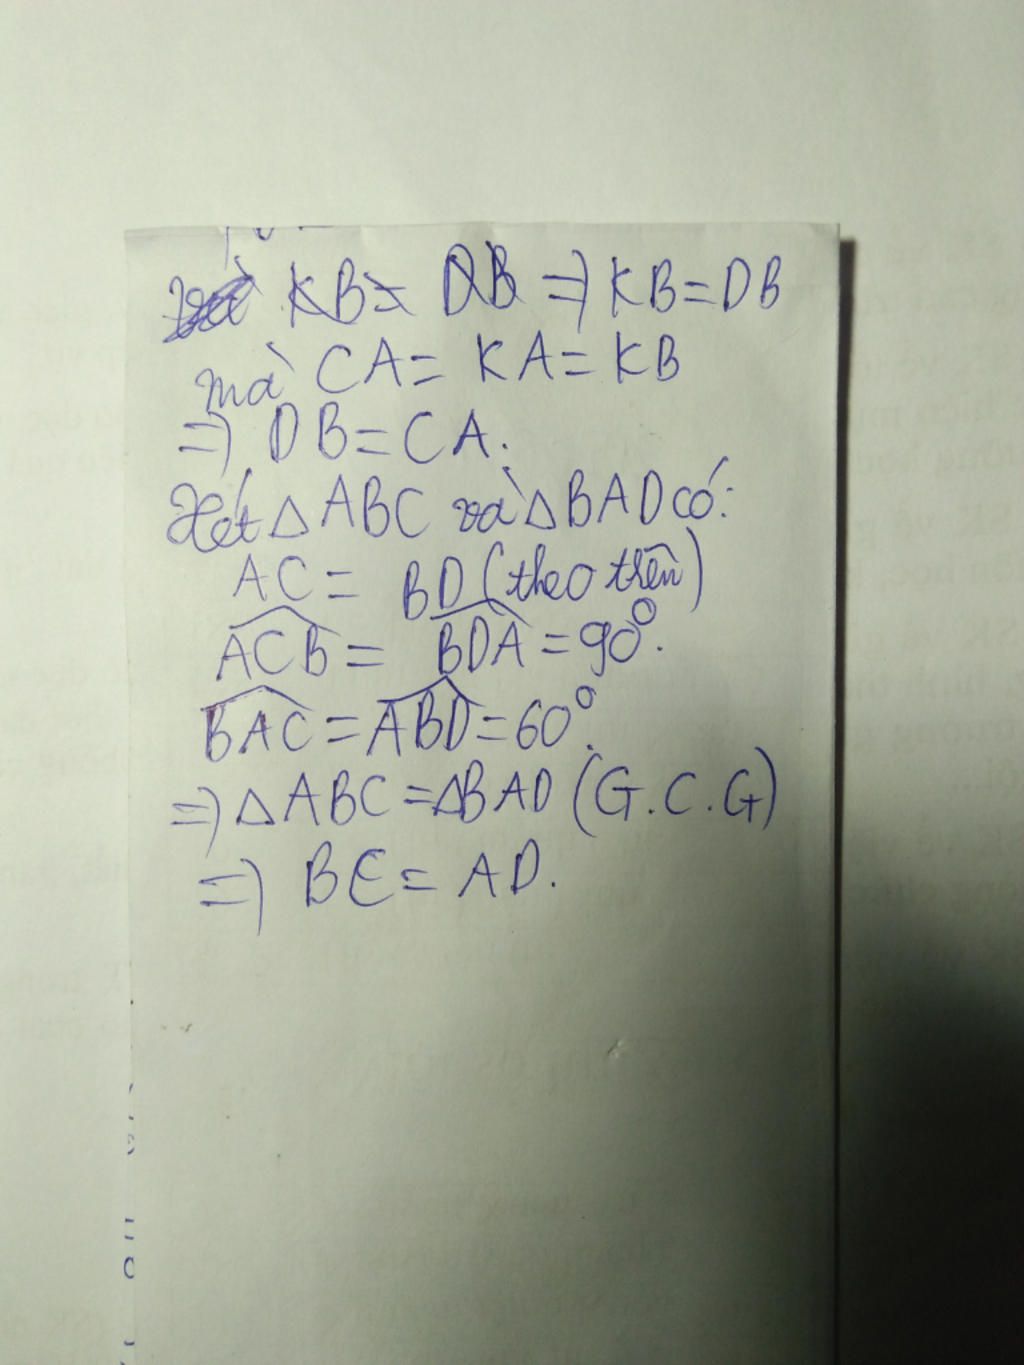 KB = DB => KB = DB
mà CA = KA = KB
=> DB = CA.
Xét △ABC và △BAD có:
AC = BD (theo trên)
\widehat{ACB} = \widehat{BDA} = 90°.
\widehat{BAC} = \widehat{ABD} = 60°.
=> △ABC = △BAD (G.C.G)
=> BC = AD.